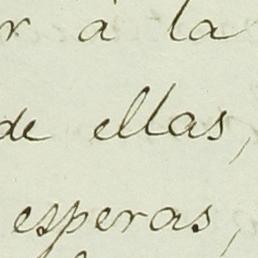 r à la
de ellas,
esperas,